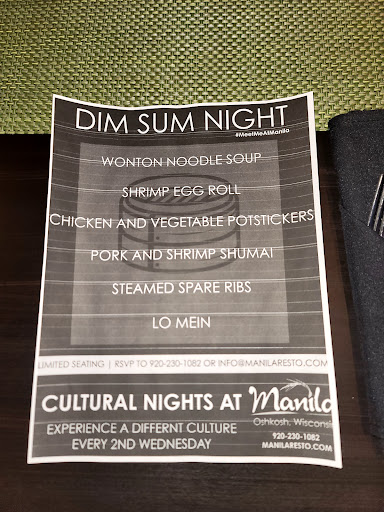 DIM SUM NIGHT
#MeetMeAtManila
WONTON NOODLE SOUP
SHRIMP EGG ROLL
CHICKEN AND VEGETABLE POTSTICKERS
PORK AND SHRIMP SHUMAI
STEAMED SPARE RIBS
LO MEIN
LIMITED SEATING | RSVP TO 920-230-1082 OR INFO@MANILARESTO.COM
CULTURAL NIGHTS AT Manila
Oshkosh, Wisconsin
EXPERIENCE A DIFFERNT CULTURE
EVERY 2ND WEDNESDAY
920-230-1082
MANILARESTO.COM